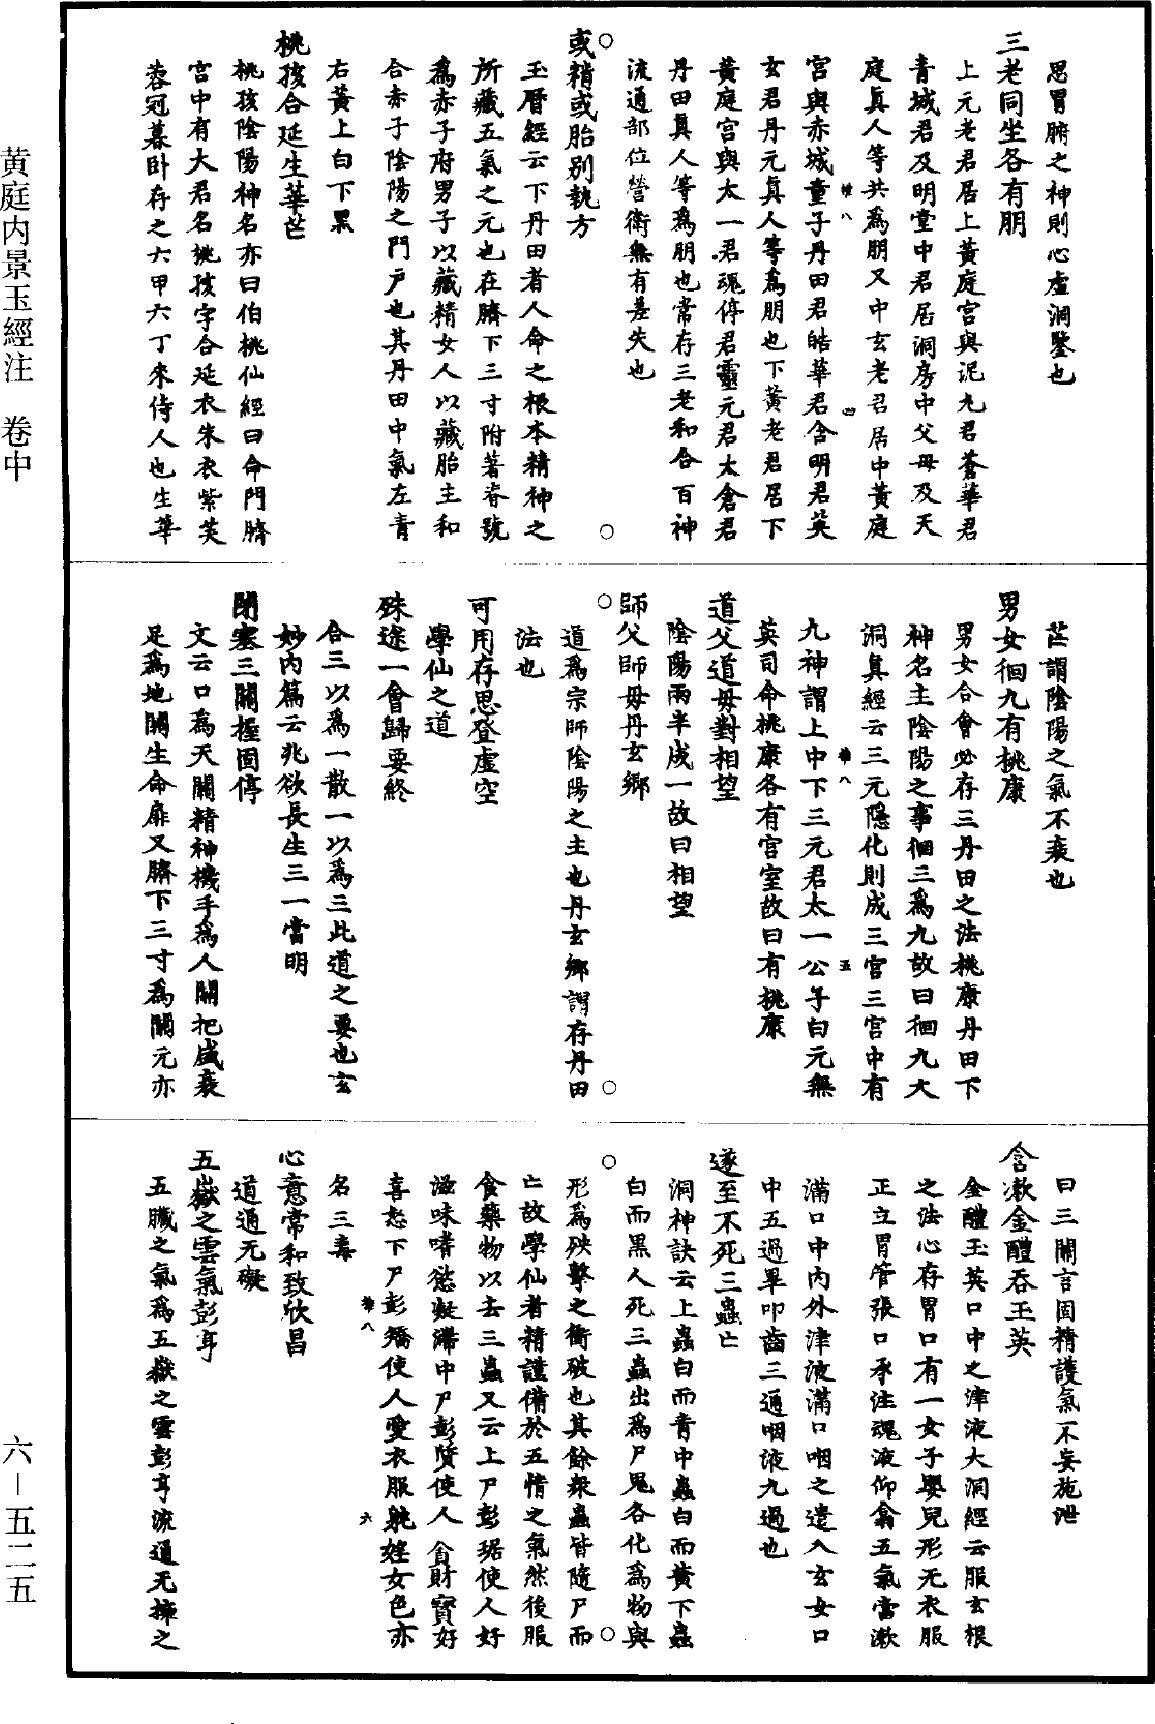 思胃腑之神則心虛洞鑒也
三老同坐各有朋
上元老君居上黃庭宮與泥丸君蒼華君
青城君及明堂中君居洞房中父母及天
庭眞人等共爲朋又中玄老君居中黃庭
宮與赤城童子丹田君皓華君含明君英
玄君丹元眞人等爲朋也下黃老君居下
黃庭宮與太一君魂停君靈元君太倉君
丹田眞人等爲朋也常存三老和合百神
流通部位營衛無有差失也
或精或胎別執方
玉曆經云下丹田者人命之根本精神之
所藏五氣之元也在臍下三寸附著脊號
爲赤子府男子以藏精女人以藏胎主和
合赤子陰陽之門戶也其丹田中氣左青
右黃上白下黑
桃孩合延生華芒
桃孩陰陽神名亦曰伯桃仙經曰命門臍
宮中有大君名桃孩字合延衣朱衣紫芙
蓉冠暮臥存之六甲六丁來侍人也生華
芒謂陰陽之氣不衰也
男女徊九有桃康
男女合會必存三丹田之法桃康丹田下
神名主陰陽之事徊三爲九故曰徊九大
洞眞經云三元隱化則成三宮三宮中有
九神謂上中下三元君太一公子白元無
英司命桃康各有宮室故曰有桃康
道父道母對相望
陰陽兩半成一故曰相望
師父師母丹玄鄉
道爲宗師陰陽之主也丹玄鄉謂存丹田
法也
可用存思登虛空
學仙之道
殊途一會歸要終
合三以爲一散一以爲三此道之要也玄
妙內篇云兆欲長生三一當明
閉塞三關握固停
文云口爲天關精神機手爲人關把盛衰
足爲地關生命扉又臍下三寸爲關元亦
曰三關言固精護氣不妄施泄
含漱金醴吞玉英
金醴玉英口中之津液大洞經云服玄根
之法心存胃口有一女子嬰兒形无衣服
正立胃管張口承注魂液仰翕五氣當漱
滿口中內外津液滿口咽之遣入玄女口
中五過畢叩齒三通咽液九過也
遂至不死三蟲亡
洞神訣云上蟲白而青中蟲白而黃下蟲
白而黑人死三蟲出爲尸鬼各化爲物與
形爲殃擊之衝破也其餘衆蟲皆隨尸而
亡故學仙者精謹備於五情之氣然後服
食藥物以去三蟲又云上尸彭琚使人好
滋味嗜慾凝滯中尸彭質使人貪財寶好
喜怒下尸彭矯使人愛衣服耽婬女色亦
名三毒
心意常和致欣昌
道通无礙
五嶽之雲氣彭亨
五臟之氣爲五嶽之雲彭亨流通无擁之
黄庭内景玉經注　卷中
六－五二五